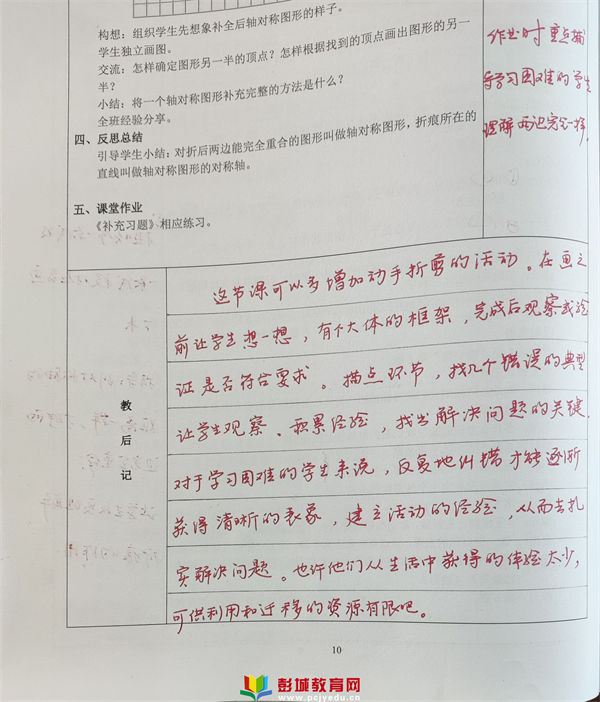 构想：组织学生先想象补全后轴对称图形的样子。
学生独立画图。
交流：怎样确定图形另一半的顶点？怎样根据找到的顶点画出图形的另一
半？
小结：将一个轴对称图形补充完整的方法是什么？
全班经验分享。
四、反思总结
引导学生小结：对折后两边能完全重合的图形叫做轴对称图形，折痕所在的
直线叫做轴对称图形的对称轴。
五、课堂作业
《补充习题》相应练习。
作业时重点指
导学习困难的学生
理解两边完全一样。
教后记
这节课可以多增加动手折剪的活动。在画之
前让学生想一想，有个大体的框架，完成后观察或验
证是否符合要求。描点环节，找几个错误的典型
让学生观察、积累经验，找出解决问题的关键。
对于学习困难的学生来说，反复地纠错才能逐渐
获得清晰的表象，建立活动的经验，从而去扎
实解决问题。也许他们从生活中获得的体验太少，
可供利用和迁移的资源有限吧。
10
彭城教育网
www.pcjyedu.cn